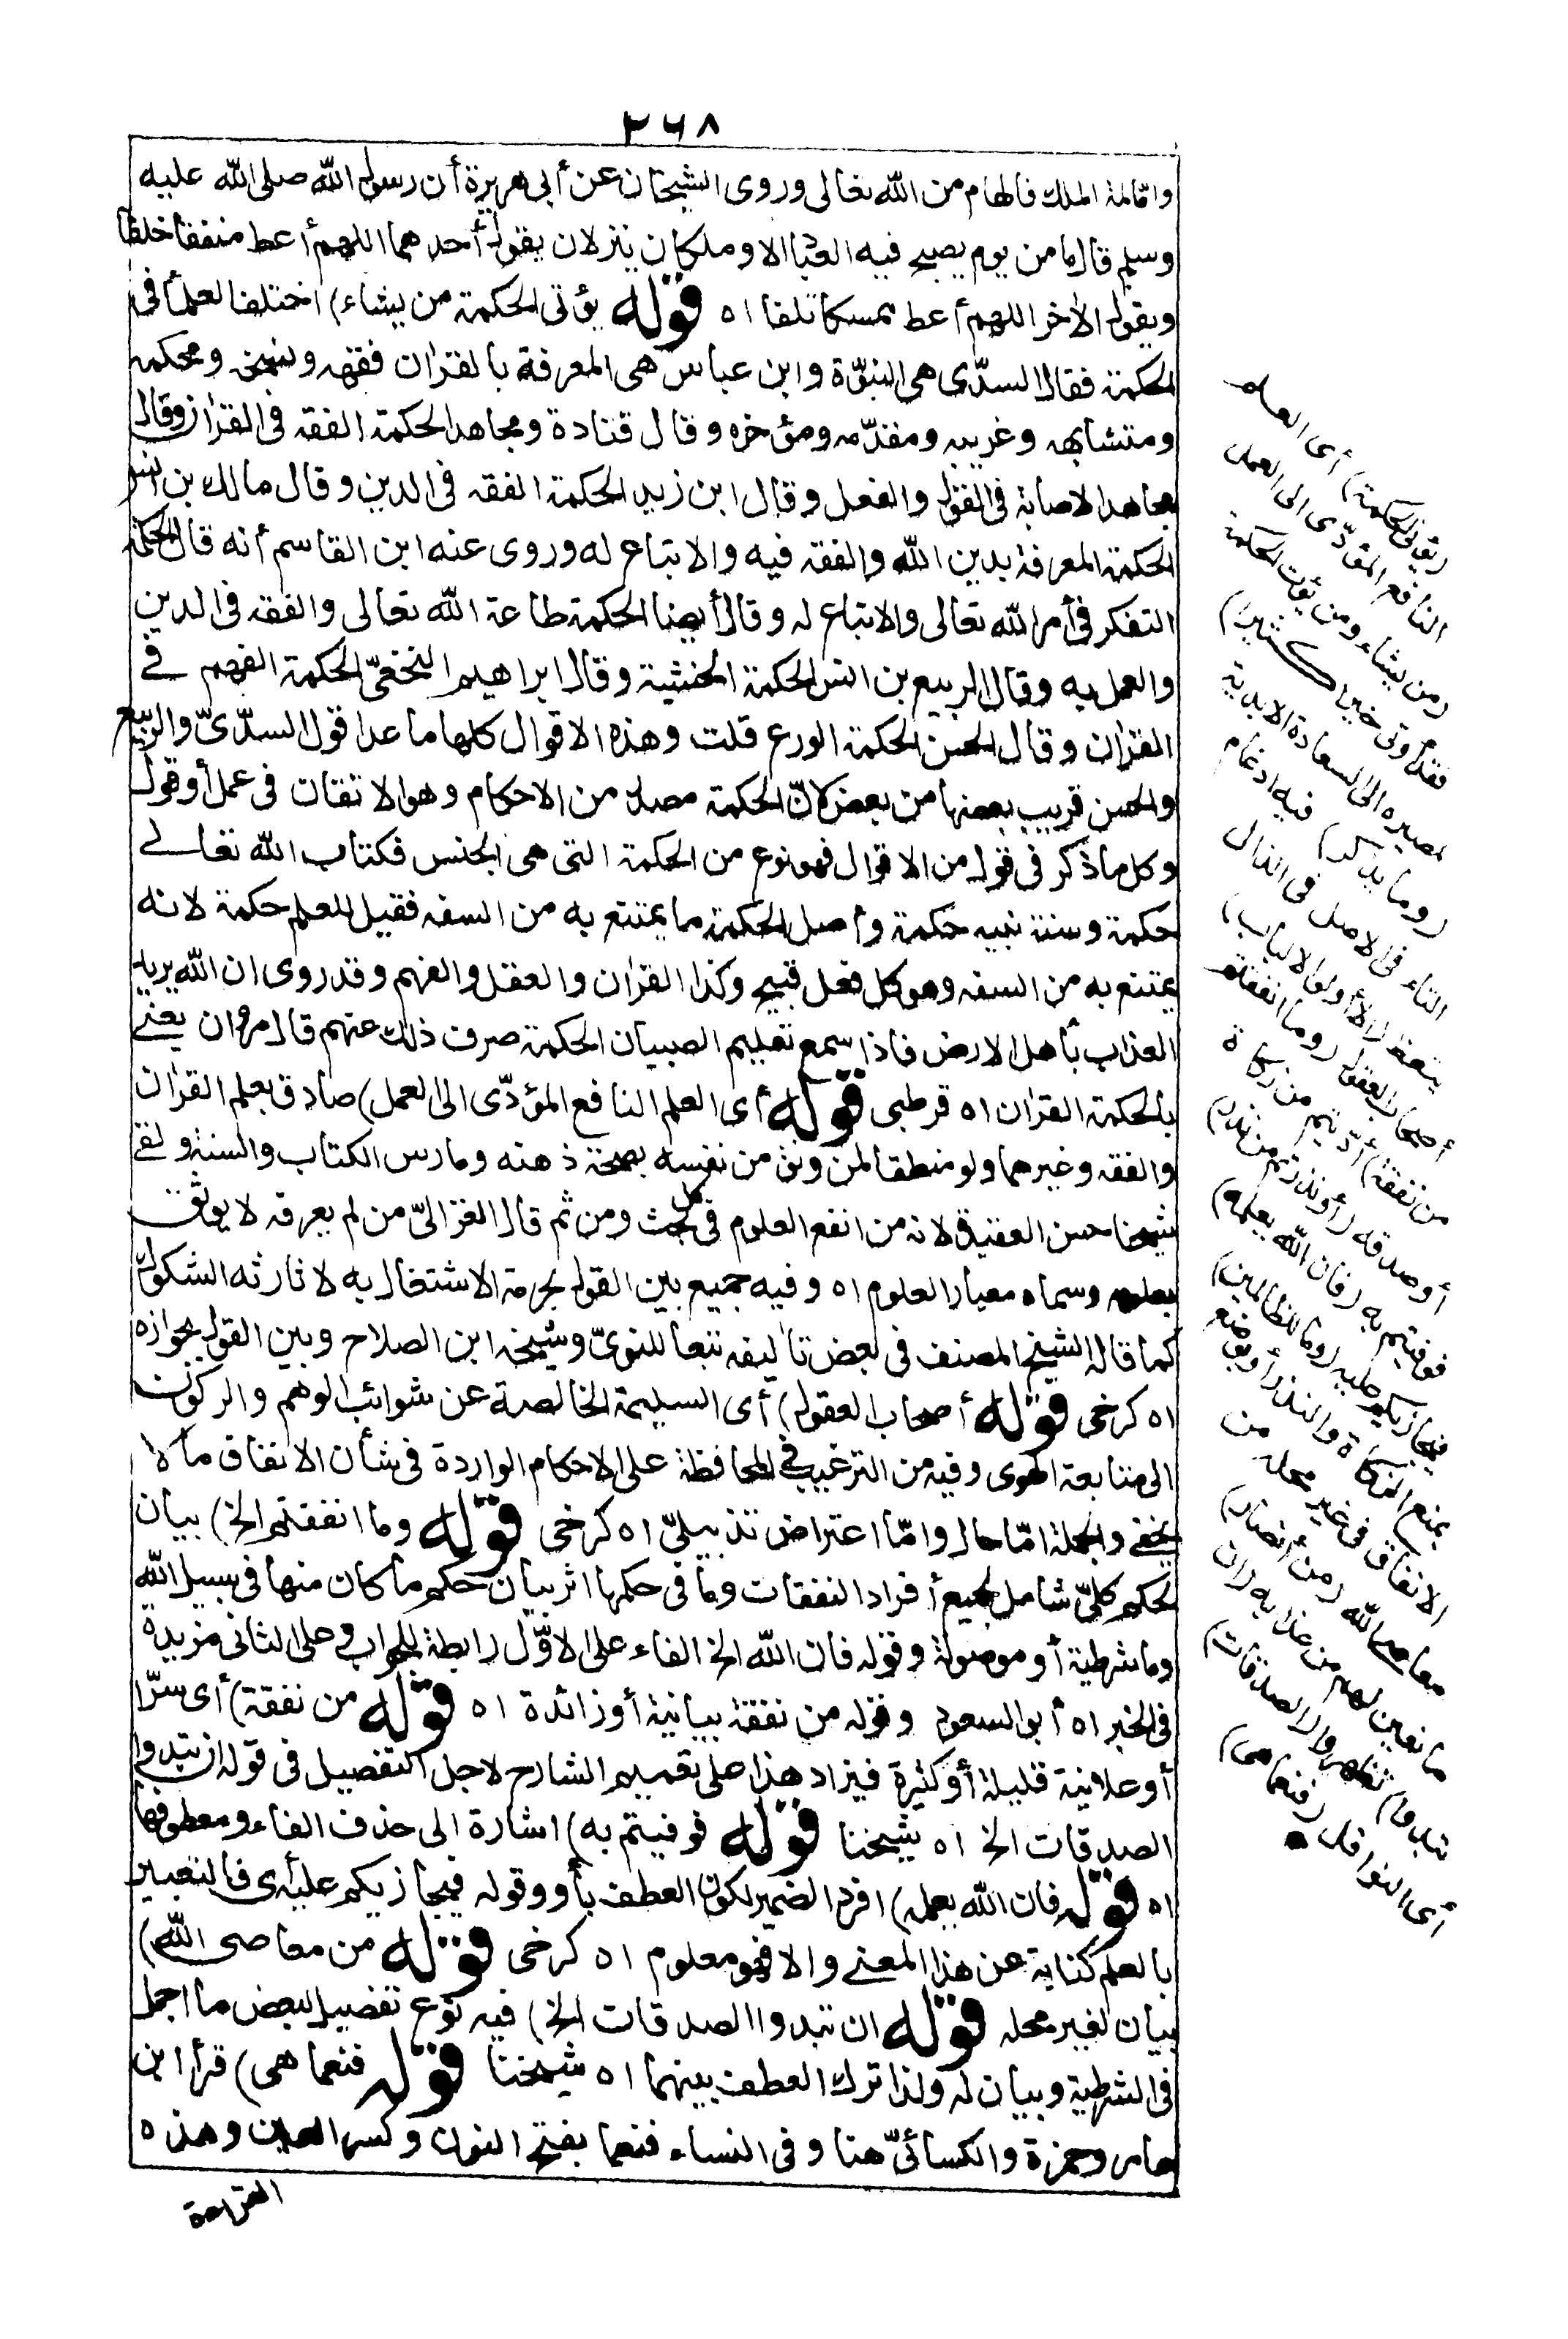 ٢٦٨
وامّا لمة الملك فالهام من الله تعالى وروى الشيخان عن أبى هريرة أن رسول الله صلى الله عليه
وسلم قال ما من يوم يصبح فيه العباد الا وملكان ينزلان يقول أحدهما اللهم أعط منفقا خلفا
ويقول الآخر اللهم أعط ممسكا تلفا اه قوله يؤتى الحكمة من يشاء) اختلف العلماء فى
الحكمة فقال السدّى هى النبوّة وابن عباس هى المعرفة بالقرآن فقهه ونسخه ومحكمه
ومتشابهه وغريبه ومقدّمه ومؤخره وقال قتادة ومجاهد الحكمة الفقه فى القرآن وقال
مجاهد الاصابة فى القول والفعل وقال ابن زيد الحكمة الفقه فى الدين وقال مالك بن انس
الحكمة المعرفة بدين الله والفقه فيه والاتباع له وروى عنه ابن القاسم أنه قال الحكمة
التفكر فى أمر الله تعالى والاتباع له وقال أيضا الحكمة طاعة الله تعالى والفقه فى الدين
والعمل به وقال الربيع بن انس الحكمة الخشية وقال ابراهيم النخعىّ الحكمة الفهم فى
القرآن وقال الحسن الحكمة الورع قلت وهذه الاقوال كلها ما عدا قول السدّىّ والربيع
والحسن قريب بعضها من بعض لانّ الحكمة مصدر من الاحكام وهو الاتقان فى عمل أو قول
وكل ما ذكر فى قوله من الاقوال فهو نوع من الحكمة التى هى الجنس فكتاب الله تعالى
حكمة وسنة نبيه حكمة وأصل الحكمة ما يمتنع به من السفه فقيل للعلم حكمة لانه
يمتنع به من السفه وهو كل فعل قبيح وكذا القرآن والعقل والفهم وقد روى ان الله يريد
العذاب بأهل الارض فاذا سمع تعليم الصبيان الحكمة صرف ذلك عنهم قال مروان يعنى
بالحكمة القرآن اه قرطبى قوله أى العلم النافع المؤدّى الى العمل) صادق بعلم القرآن
والفقه وغيرهما ولو منطقا لمن وثق من نفسه بصحة ذهنه ومارس الكتاب والسنة ولقى
شيخنا حسن العقيدة لانه من انفع العلوم فى كل بحث ومن ثم قال الغزالىّ من لم يعرفه لا يوثق
بعلومه وسماه معيار العلوم اه وفيه جميع بين القول بحرمة الاشتغال به لاثارته الشكوك
كما قاله الشيخ المصنف فى بعض تآليفه تبعا للنووىّ وشيخه ابن الصلاح وبين القول بجوازه
اه كرخى قوله أصحاب العقول) أى السليمة الخالصة عن شوائب الوهم والركون
الى متابعة الهوى وفيه من الترغيب فى المحافظة على الاحكام الواردة فى شأن الانفاق مالا
يخفى والجملة امّا حال وامّا اعتراض تذييلىّ اه كرخى قوله وما انفقتم الخ) بيان
لحكم كلىّ شامل لجميع أفراد النفقات وما فى حكمها اثر بيان حكم ما كان منها فى سبيل الله
وما شرطية أو موصولة وقوله فان الله الخ الفاء على الاوّل رابطة للجواب وعلى الثانى مزيدة
فى الخبر اه أبو السعود وقوله من نفقة بيانية أو زائدة اه قوله من نفقة) أى سرّا
أو علانية قليلة أو كثيرة فيزاد هذا على تعميم الشارح لاجل التفصيل فى قوله ان تبدوا
الصدقات الخ اه شيخنا قوله فوفيتم به) اشارة الى حذف الفاء ومعطوفها
اه قوله فان الله يعمله) افرد الضمير لكون العطف بأو وقوله فيجازيكم عليه أى فالتعبير
بالعلم كناية عن هذا المعنى والا فهو معلوم اه كرخى قوله من معاصى الله)
بيان لغير محله قوله ان تبدوا الصدقات الخ) فيه نوع تفصيل لبعض ما اجمل
فى الشرطية وبيان له ولذا ترك العطف بينهما اه شيخنا قوله فنعما هى) قرأ ابن
عامر وحمزة والكسائىّ هنا وفى النساء فنعما بفتح النون وكسر العين وهذه
القراءة
(يؤتى الحكمة) أى العلم
النافع المؤدّى الى العمل
(من يشاء ومن يؤت الحكمة
فقد أوتى خيرا كثيرا)
لمصيره الى السعادة الابدية
(وما يذكر) فيه ادغام
التاء فى الاصل فى الذال
يتعظ (الا أولوا الالباب)
أصحاب العقول (وما انفقتم
من نفقة) أدّيتم من زكاة
أو صدقة (أو نذرتم من نذر)
فوفيتم به (فان الله يعلمه)
فيجازيكم عليه (وما للظالمين)
بمنع الزكاة والنذر أو بوضع
الانفاق فى غير محله من
معاصى الله (من أنصار)
مانعين لهم من عذابه (ان
تبدوا) تظهروا (الصدقات)
أى النوافل (فنعما هى)